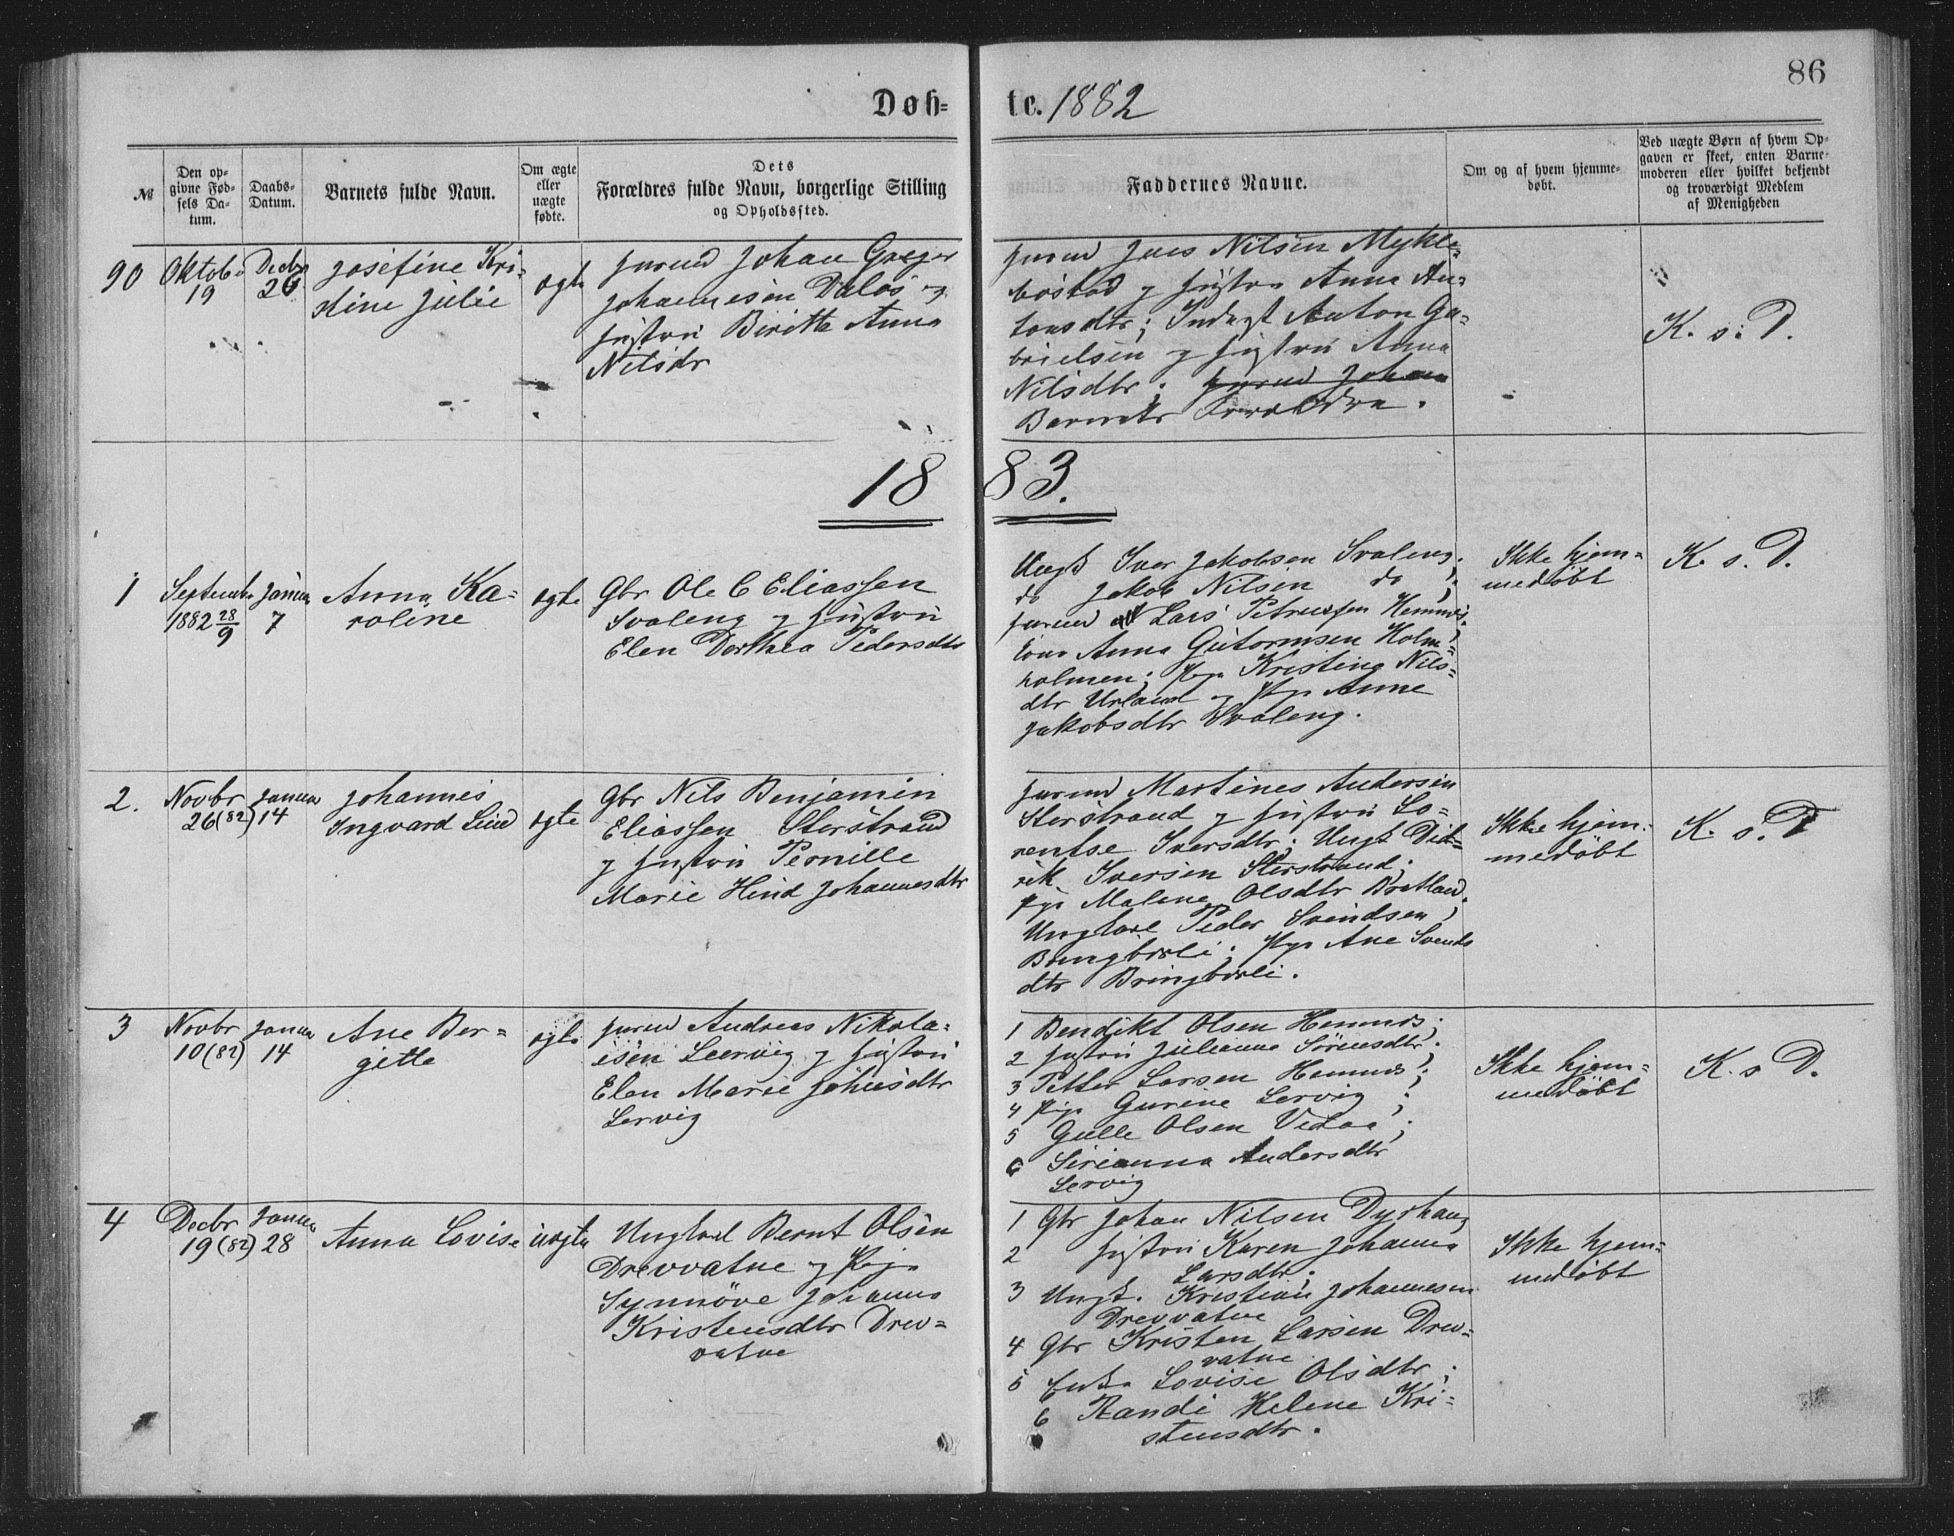 86
Døb= te. 1882
№
Den op=
givne Fød=
sels Da=
tum.
Daabs=
Datum.
Barnets fulde Navn.
Om ægte
eller
uægte
fødte.
Dets
Forældres fulde Navn, borgerlige Stilling
og Opholdssted.
Faddernes Navne.
Om og af hvem hjemme=
døbt.
Ved uægte Børn af hvem Op=
gaven er skeet, enten Barne=
moderen eller hvilket bekjendt
og troværdigt Medlem
af Menigheden
90
Oktobr
19
Decbr
26
Josefine Kri=
stine Julie
ægte
Johan Greger
Johannesen Dalos og
Hustru Biritte Anna
Nilsdr
Jens Nilsen Mykle=
bostad og Hustru Anna An=
tonsdtr; Inderst Anton Ga=
brielsen og Hustru Anna
Nilsdtr; Johan
Barnets Forældre.
K. s. D.
18 83.
1
September
1882 28/9
Januar
7
Anna Ka=
roline
ægte
Gbr Ole C Eliassen
Svaleng og Hustru
Elen Dorthea Pedersdtr
Ungk Iver Jakobsen Svaleng;
do Jakob Nilsen do;
Lars Petrussen Hemnes;
Kone Anna Gutormsen Holm=
holmen; Pige Kristine Nils=
dtr Urland og Pige Anne
Jakobsdtr Svaleng.
Ikke hjem=
medøbt
K. s. D.
2.
Novbr
26 (82)
Januar
14
Johannes
Ingvard Lind
ægte
Gbr Nils Benjamin
Eliassen Sterstrand
og Hustru Pernille
Marie Hind Johannesdtr
Martines Andersen
Sterstrand og Hustru Lo=
rentse Iversdtr; Ungk Did=
rik Iversen Sterstrand;
Pige Malene Olsdtr Bratland;
Ungkarl Peder Svendsen
Bringbæli; Pige Ane Svends
dtr Bringbæli.
Ikke hjem=
medøbt
K. s. D
3
Novbr
10 (82)
Januar
14
Ane Ber=
gitte
ægte
Andreas Nikola=
isen Leervig og Hustru
Elen Marie Johnsdtr
Lervig
1 Bendikt Olsen Hemnes;
2 Hustru Julianna Sørensdtr;
3 Petter Larsen Hemnes;
4 Pige Gurine Lervig;
5 Gulle Olsen Vedaa;
6 Sirianna Andersdtr
Lervig
Ikke hjem=
medøbt
K. s D.
4
Decbr
19 (82)
Januar
28
Anna Lovise
uægte
Ungkarl Bernt Olsen
Drevvatne og Pige
Synnøve Johanna
Kristensdtr Drev=
vatne
1 Gbr Johan Nilsen Dyrhaug
2 Hustru Karen Johanna
Larsdtr;
3 Ungk. Kristian Johannesen
Drevvatne
4 Gbr Kristen Larsen Drev=
vatne
5 Enke Lovise Olsdtr;
6 Randi Helene Kri=
stensdtr.
Ikke hjem=
medøbt